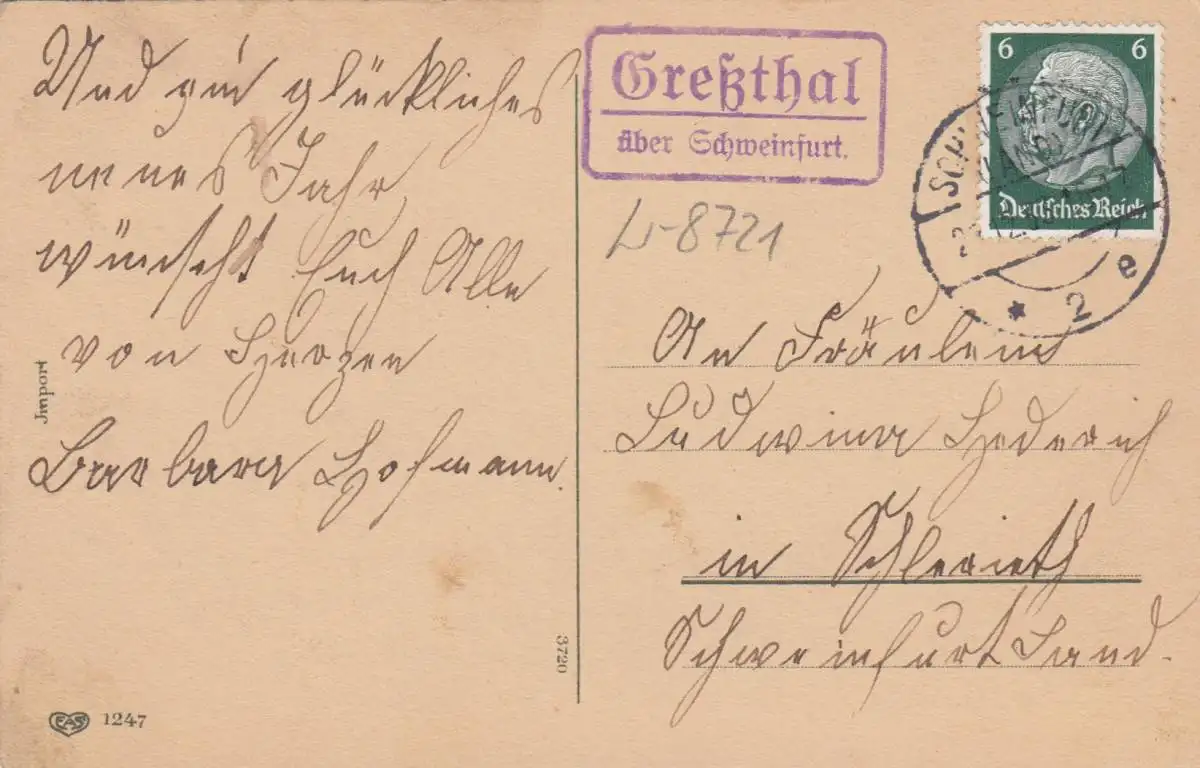 Und ein glückliches
neues Jahr
wünscht Euch Alle
von Herzen
Barbara Hofmann.
Import
EAS 1247
3720
Greßthal
über Schweinfurt.
6 6
Deutsches Reich
SCHWEINFURT
LAND
e
* 2
8721
An Fräulein
Ludwina Hederich
in Schlerieth
Schweinfurt Land.